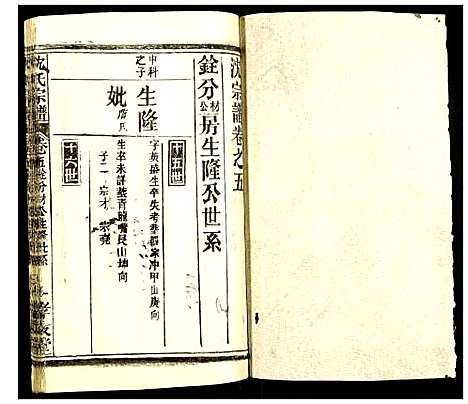 沈氏宗譜卷之五
銓分材公房生隆公世系
十五世
中科之子
生隆
字英盛生卒失考葬羅家冲甲山庚向
妣
生卒未詳葬青龍嘴艮山坤向
子二 宗才 宗堯
十六世
沈氏宗譜 卷五銓分材公生隆世系 一 孝友堂